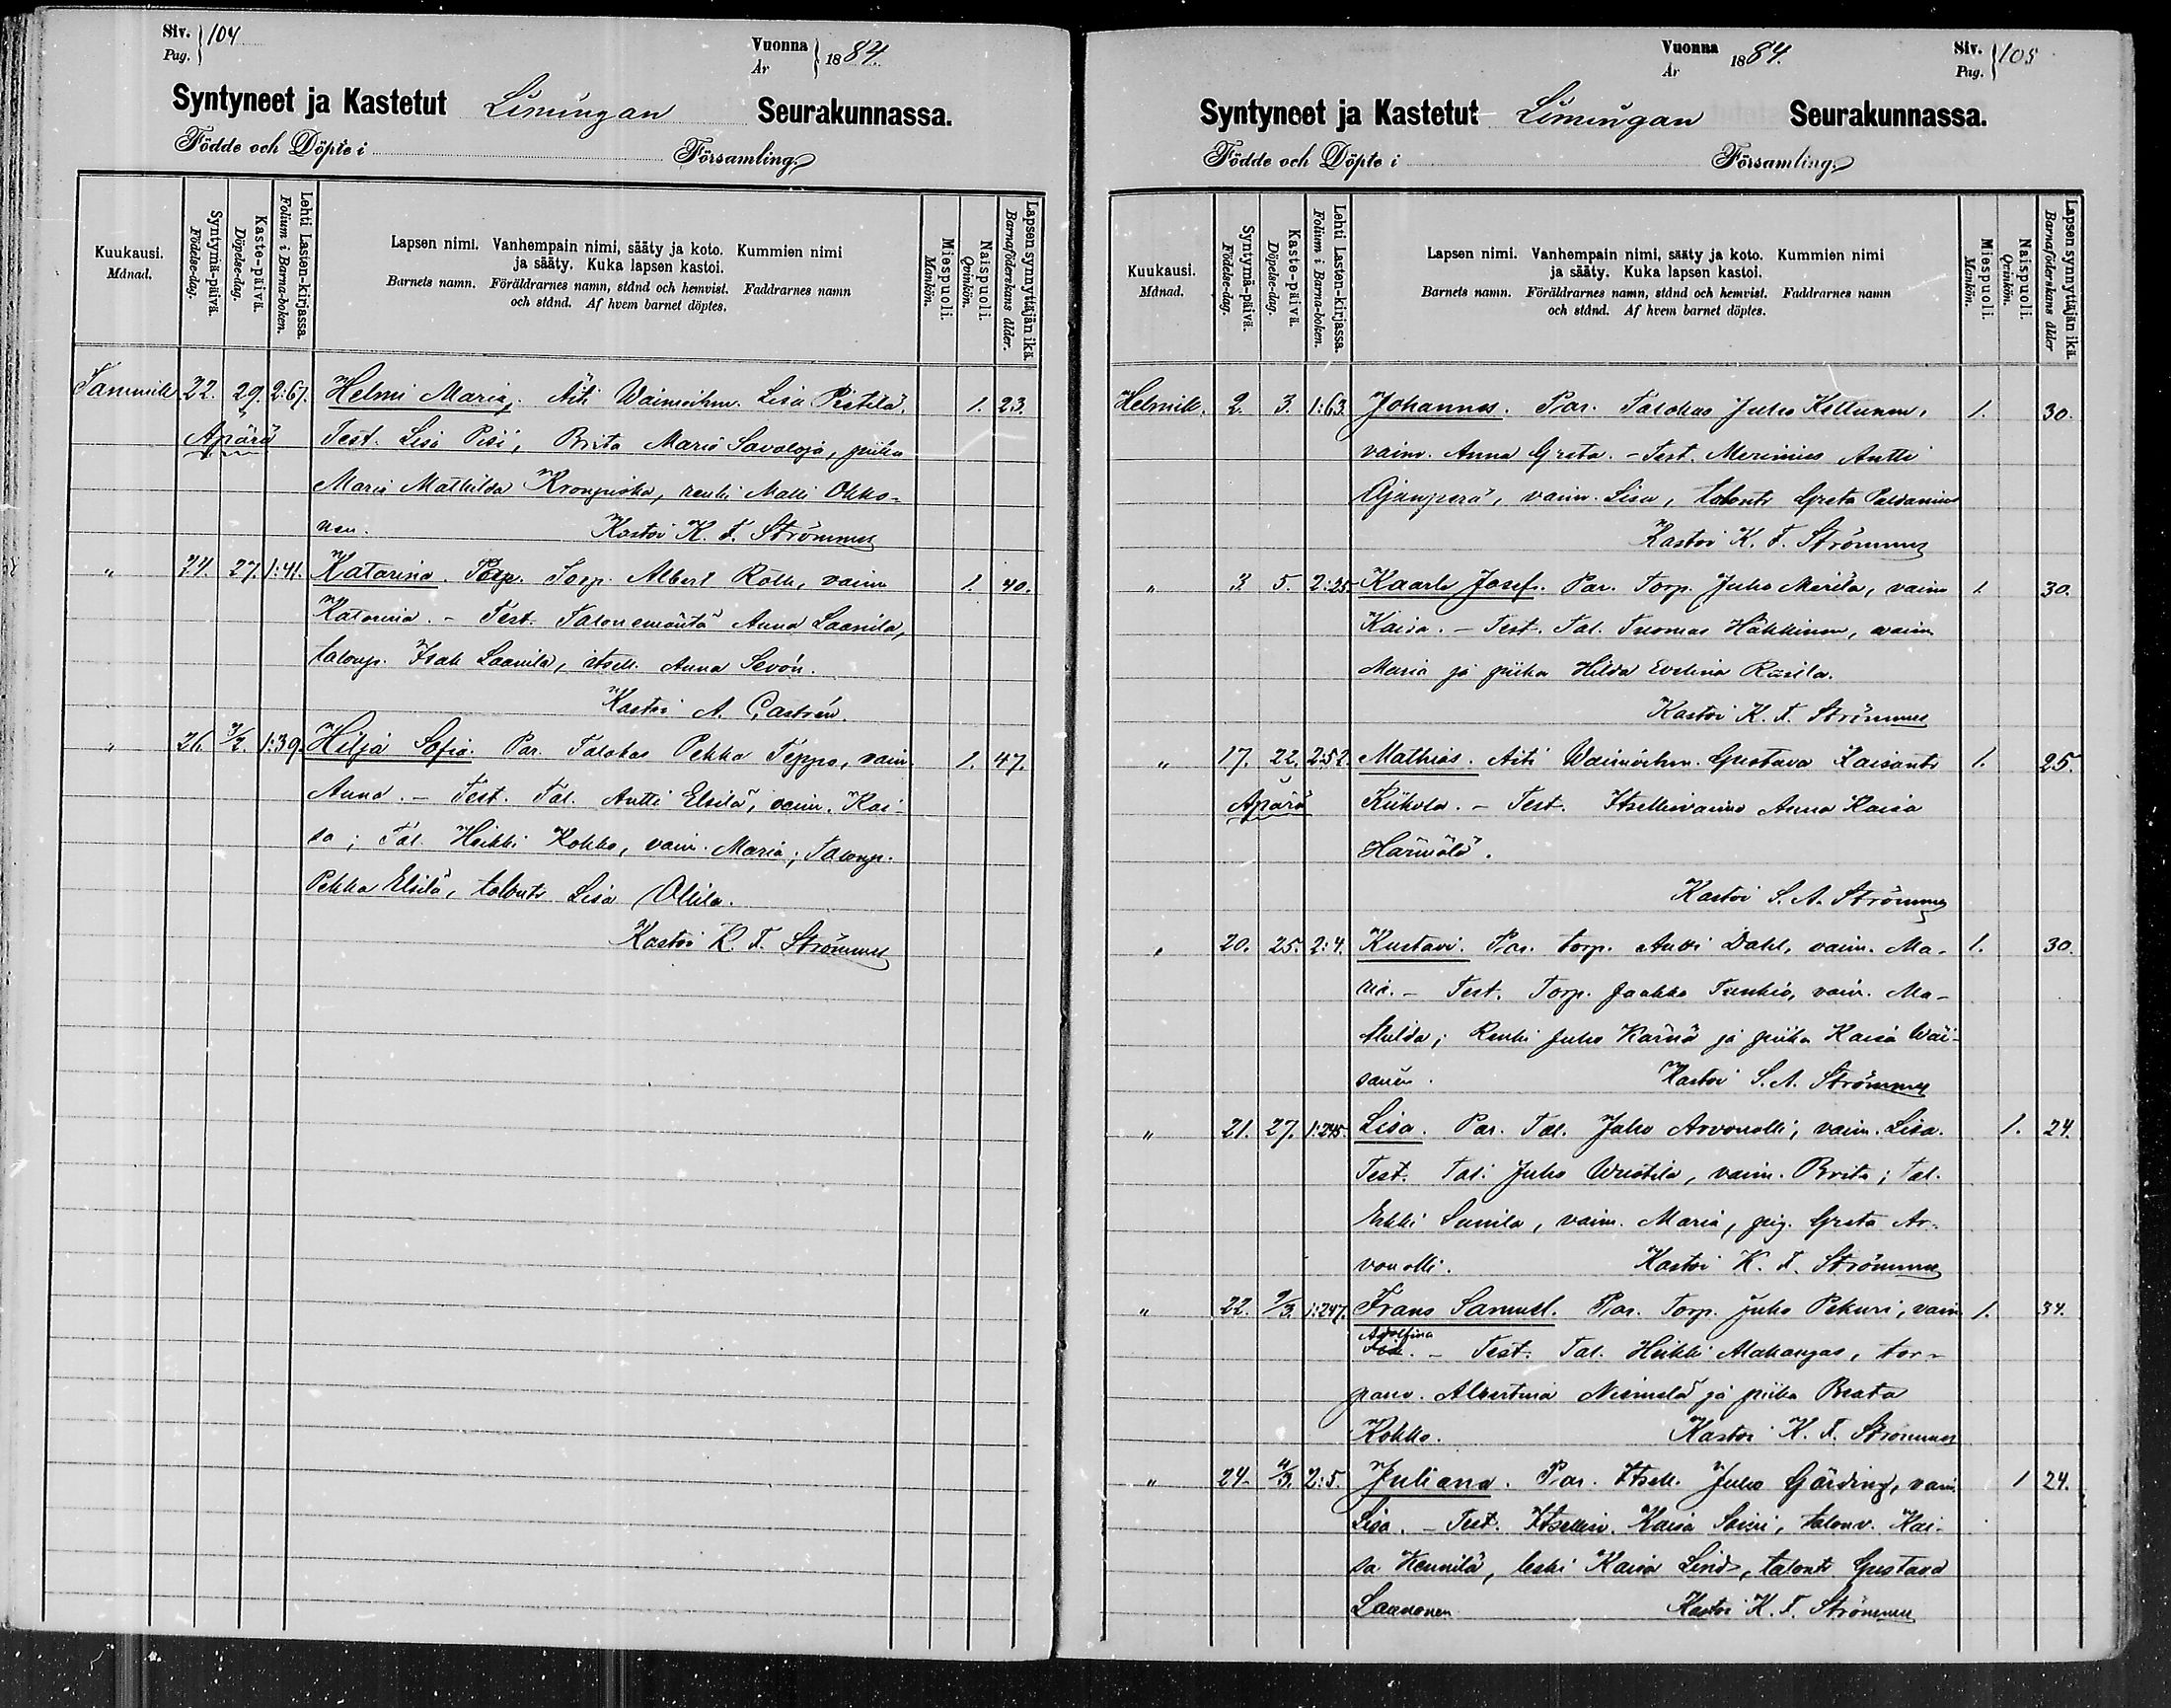 Siv. Pag. 104
Vuonna År 1884.
Syntyneet ja Kastetut Limingan Seurakunnassa.
Födde och Döpte i Församling.
Kuukausi. Månad.
Syntymä-päivä. Födelse-dag.
Kaste-päivä. Döpelse-dag.
Lehti Lasten-kirjassa. Folium i Barna-boken.
Lapsen nimi. Vanhempain nimi, sääty ja koto. Kummien nimi
ja sääty. Kuka lapsen kastoi.
Barnets namn. Föräldrarnes namn, stånd och hemvist. Faddrarnes namn
och stånd. Af hvem barnet döptes.
Miespuoli. Mankön.
Naispuoli. Qvinkön.
Lapsen synnyttäjän ikä. Barnaföderskans ålder.
Tammik 22. 29. 2:67. Helmi Maria. Äiti Waimoihm. Lisa Pietilä. 1. 23.
Äpärä Test. Lisa Pisi, Brita Maria Savaloja, piika
Maria Mathilda Kronqvist, renki Matti Okko-
nen. Kastoi K. F. Strömmer
" 24. 27. 1:41. Katarina. Torp. Albert Roth, vaimo 1. 40.
Katarina. - Test. Talonemäntä Anna Laanila,
talonp. Isak Laanila, itsell. Anna Sevón.
Kastoi A. Castrén.
" 26. 3/2. 1:39. Hilja Sofia. Par. Talokas Pekka Teppo, vaim. 1. 47.
Anna. - Test. Tal. Antti Elsilä, vaim. Kai-
sa; Tal. Heikki Kokko, vaim. Maria; Talonp.
Pekka Elsilä, talontr Lisa Ollila.
Kastoi K. F. Strömmer
Vuonna År 1884.
Siv. Pag. 105
Syntyneet ja Kastetut Limingan Seurakunnassa.
Födde och Döpte i Församling.
Kuukausi. Månad.
Syntymä-päivä. Födelse-dag.
Kaste-päivä. Döpelse-dag.
Lehti Lasten-kirjassa. Folium i Barna-boken.
Lapsen nimi. Vanhempain nimi, sääty ja koto. Kummien nimi
ja sääty. Kuka lapsen kastoi.
Barnets namn. Föräldrarnes namn, stånd och hemvist. Faddrarnes namn
och stånd. Af hvem barnet döptes.
Miespuoli. Mankön.
Naispuoli. Qvinkön.
Lapsen synnyttäjän ikä. Barnaföderskans ålder
Helmik. 2. 3. 1:63. Johannes. Par. Talokas Juho Kettunen, 1. 30.
vaimo. Anna Greta. - Test. Merimies Antti
Ojanperä, vaim. Lisa, talontr Greta Paldanius
Kastoi K. F. Strömmer
" 3. 5. 2:25. Kaarle Josef. Par. Torp. Juho Merilä, vaimo 1. 30.
Kaisa. - Test. Tal. Tuomas Häkkinen, vaim.
Maria ja piika Hilda Evelina Rusila.
Kastoi K. F. Strömmer
" 17. 22. 2:52. Mathias. Äiti Waimoihm. Gustava Kaisantr 1. 25.
Äpärä Test. Itsellisvaimo Anna Kaisa
Härmälä.
Kastoi S. A. Strömmer
" 20. 25. 2:4. Kustavi. Par. torp. Antti Dahl, vaim. Ma- 1. 30.
ria. - Test. Torp. Jaakko Tunkio, vaim. Ma-
thilda; Renki Juho Kärnä ja piika Kaisa Wäi-
sänen. Kastoi S. A. Strömmer
" 21. 27. 1:245. Lisa. Par. Tal. Juho Arvonolli, vaim. Lisa. 1. 24.
Test. Tal. Juho Wuotila, vaim. Brita; Tal.
Erkki Sunila, vaim. Maria, pig. Greta Ar-
vonolli. Kastoi K. F. Strömmer
" 22. 9/3. 1:247. Frans Samuel. Par. Torp. Juho Pekuri, vaim. 1. 34.
Adolfina
- Test. Tal. Heikki Alakangas, tor-
panv. Albertina Niemelä ja piika Beata
Kokko. Kastoi K. F. Strömmer
" 24. /3. 2:5. Juliana. Par. Itsell. Juho Gärding, vaim. 1 24.
Lisa. - Test. Itsellisv. Kaisa Soini, talonv. Kai-
sa Hennilä, leski Kaisa Lind, talontr Gustava
Laanonen Kastoi K. F. Strömmer